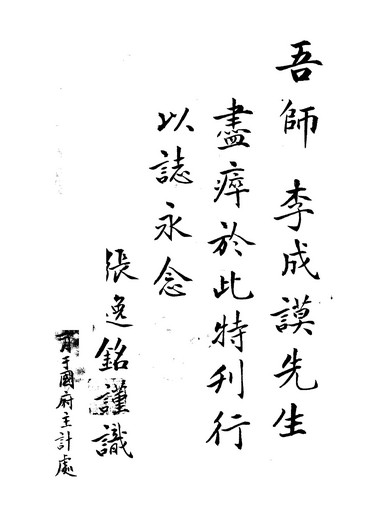 吾師 李成謨先生
盡瘁於此特刊行
以誌永念
張逸銘謹識
月于國府主計處